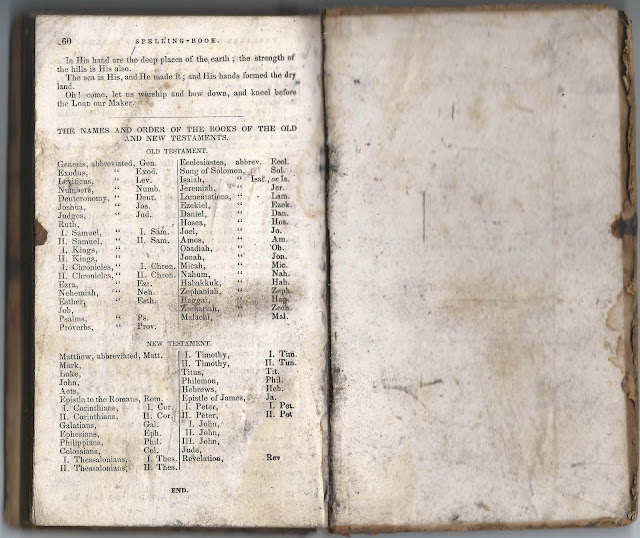 60 SPELLING-BOOK.
In His hand are the deep places of the earth; the strength of
the hills is His also.
The sea is His, and He made it; and His hands formed the dry
land.
Oh! come, let us worship and bow down, and kneel before
the LORD our Maker.
THE NAMES AND ORDER OF THE BOOKS OF THE OLD
AND NEW TESTAMENTS.
OLD TESTAMENT.
Genesis, abbreviated, Gen.
Exodus, “ Exod.
Leviticus, “ Lev.
Numbers, “ Numb.
Deuteronomy, “ Deut.
Joshua, “ Jos.
Judges, “ Jud.
Ruth,
I. Samuel, “ I. Sam.
II. Samuel, “ II. Sam.
I. Kings, “
II. Kings, “
I. Chronicles, “ I. Chron.
II. Chronicles, “ II. Chron.
Ezra, “ Ezr.
Nehemiah, “ Neh.
Esther, “ Esth.
Job,
Psalms, “ Ps.
Proverbs, “ Prov.
Ecclesiastes, abbrev. Eccl.
Song of Solomon, Sol.
Isaiah, “ Isa., or Is.
Jeremiah, “ Jer.
Lamentations, “ Lam.
Ezekiel, “ Ezek.
Daniel, “ Dan.
Hosea, “ Hos.
Joel, “ Jo.
Amos, “ Am.
Obadiah, “ Ob.
Jonah, “ Jon.
Micah, “ Mic.
Nahum, “ Nah.
Habakkuk, “ Hab.
Zephaniah, “ Zeph.
Haggai, “ Hag.
Zechariah, “ Zech.
Malachi, “ Mal.
NEW TESTAMENT.
Matthew, abbreviated, Matt.
Mark,
Luke,
John,
Acts,
Epistle to the Romans, Rom.
I. Corinthians, I. Cor.
II. Corinthians, II. Cor.
Galatians, Gal.
Ephesians, Eph.
Philippians, Phil.
Colossians, Col.
I. Thessalonians, I. Thes.
II. Thessalonians, II. Thes.
I. Timothy, I. Tim.
II. Timothy, II. Tim.
Titus, Tit.
Philemon, Phil.
Hebrews, Heb.
Epistle of James, Ja.
I. Peter, I. Pet.
II. Peter, II. Pet
I. John,
II. John,
III. John,
Jude,
Revelation, Rev
END.